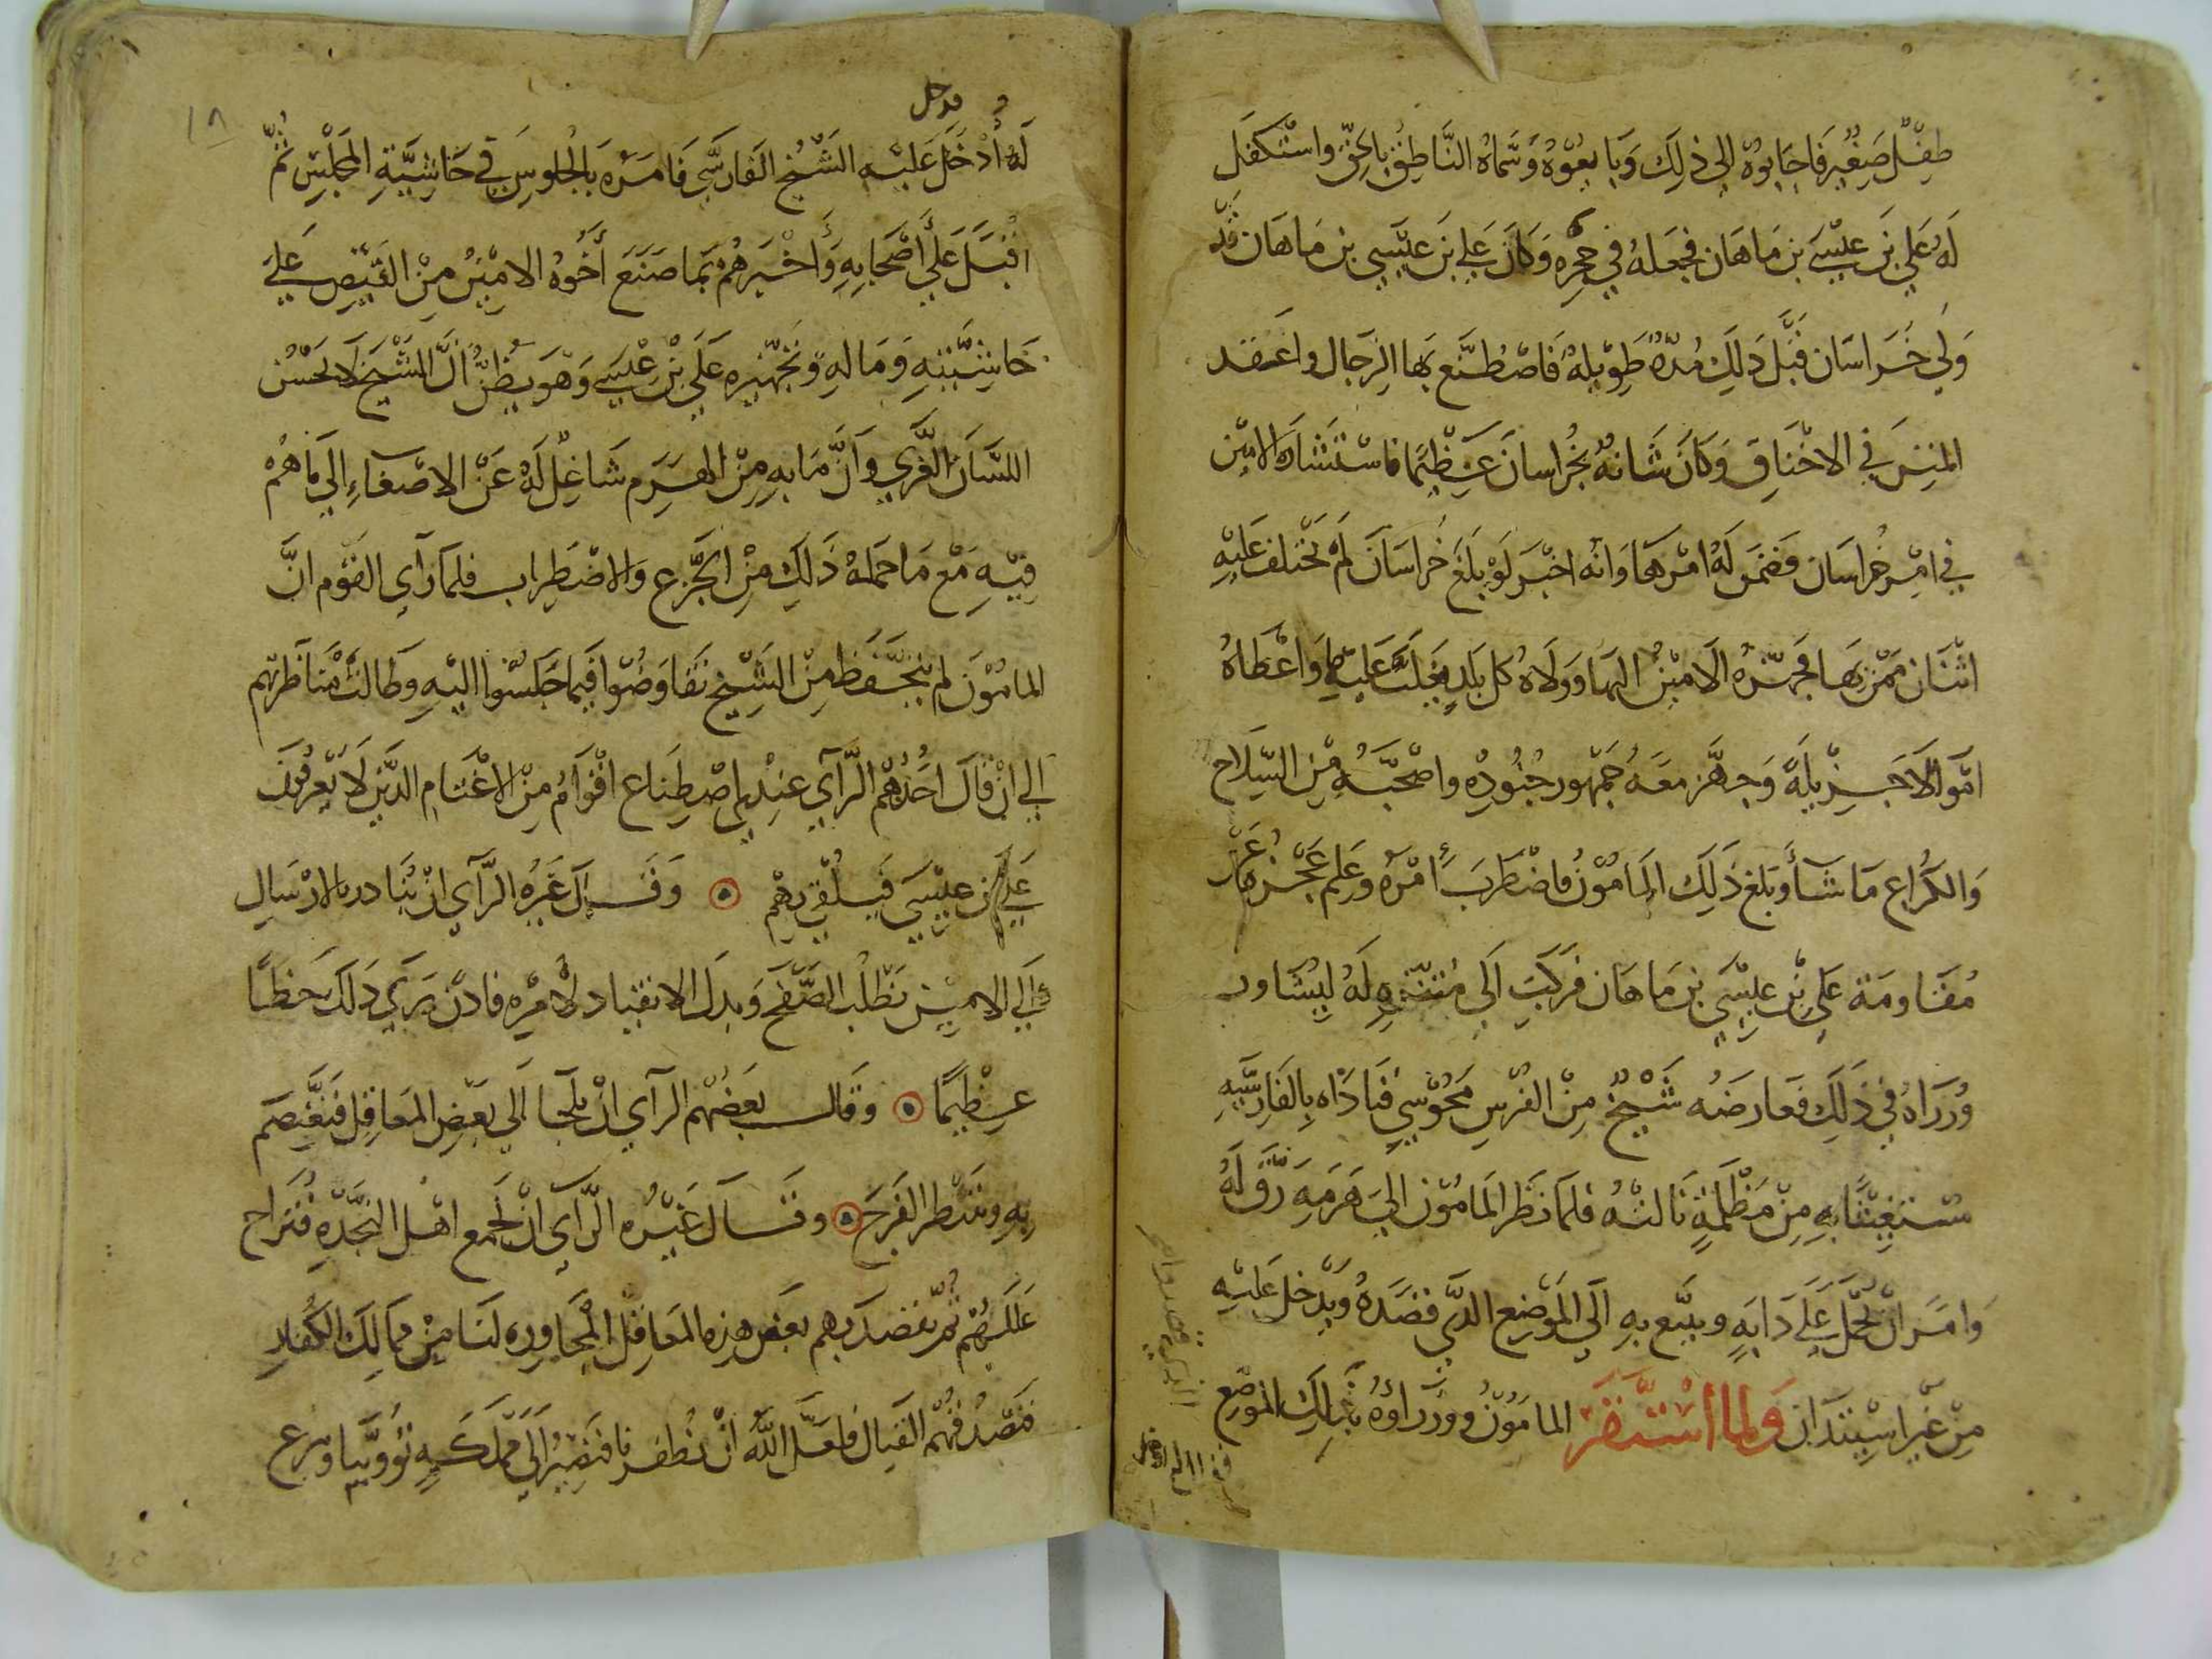 طِفْل صَغِير فَاجَابوهُ الى ذلِكَ وَبايعُوهُ وَسَماهُ النَّاطِقُ بالحَقّ واستْكفَل
لَهُ عَلي بَن عيْسَى بن مَاهَان فجعَلهُ في حجِره وَكانَ علي بَن عيْسَي بن مَاهَان قَد
وَلي خُرَاسَان قَبْل ذَلِكَ مُدّةً طَوِيْلهً فَاصْطَنَع بهَا الرِجَال واعتقد
المننَ في الاعْنَاق وَكانَ شَانهُ بخُراسانَ عَظِيْمًا فاسْتشَارهُ الامِيْن
في امْر خُراسَان فضَمنَ لهُ امْرهَا وَانّه اخْبَر لَوْ بلَغَ خُراسَانَ لَم يختلف عَليْهِ
اثْنَان ممّنْ بهَا فجَهّزهُ الامِيْنُ اليهَا وَوَلاهُ كل بَلدٍ يغلبُ عَليْهَا وَاعْطَاهُ
امْوالاً جَزِيْلهً وَجهَّز معَهُ جمْهُور جنُودِه واصْحَبَهُ مِنَ السّلَاح
وَالكرُاع مَا شَآء وَبَلغ ذَلِكَ المَامُوْنُ فاضْطَرَبَ امْرُهُ وعَلم عَجْزهُ عَنْ
مُقَاومَة عَلي بْن عيْسَي بن مَاهَان فركَبَ الَى مُتنزّهٍ لَهُ ليُشَاور
وُزرَاهُ في ذَلَكَ فعَارضَهُ شَيْخٌ مِنْ الفُرسِ مَجُوْسي فنَادَاه بالفَارسَّيهِ
مسْتغِيْثًا بهِ مِنْ مَظْلَمةٍ نَالتْهُ فلمَا نَظَر المَامُوْن الىَ هَرَمِه رَقَّ لَهُ
وَامَرَ انْ يحُمَل عَلَى دَابَهٍ ويتبَّع بهِ الَى المَوْضِع الذَّي قصَدَهُ وَيدْخل عَليْهِ
مِنْ غيْر اسِيتذَان وَلما استَقَر المامَوُنْ وَوزرَاؤهُ بذَلِكَ الموْضِع
قدخل
١٨
لَهُ أُدْخَل عَليْه الشَّيْخ الفَارسَّي فَامَرَه بَالجُلوسِ في حَاشِيَّةِ المَجلْسِ ثُمَّ
اقْبَلَ عَلَى أصْحَابِهِ وَأخْبَرهُم بمَا صَنَعَ أخُوهُ الامْيْنُ مِنْ القَبْضِ عَليَ
حَاشِيَّتهِ وَمَالهِ وتجهّيزه عَلَي بْن عْيسَي وَهوَ يظنُّ أنَّ الشَّيْخَ لَا يحْسُن
اللسَّانَ العَّرَبي وأنَّ مَا بهِ مِنْ الهَرَم شَاغِلٌ لَهُ عَنْ الاصْغاءِ الَى مَاهُمْ
فيْهِ مَعْ مَاحَملهُ ذَلَكَ مِنْ الجَّزع وَالاضْطَراب فلمَا رَأي القوْم انَّ
المامُوْنَ لم يتحَّفظ مِنْ الشَّيْخ تفَاوضُوْا فَيما جَلسُوْا اليْهِ وَطَالتْ مُنَاظَرتهم
الي انْ قَالَ احَدُهُم الرَّآي عِنْدِي اصْطِنَاع اقْوَامٍ مِنْ الاغْتَام الذَّين لَا يعْرفُونَ
عَلي بْن عيْسَي فيلْقي بهمْ وَقَال غَيْرُه الرَّآي انْ يُبَادر بالارْسَالِ
إلَي الامِيْن بَطْلُب الصَّفْحِ وَبذل الانقيَاد لأمرِه
عَظِيْمًا وقَال بعَضُهْم الرآي انْ يلجَا الَي بعَضِ المعَاقِل فنَعْتصَم
بهِ وننْتَظر الفَرجَ وقَال غَيْرُه الرَّآي انْ نجْمع اهْل النجَّدهِ فنزَاح
عَللهُمْ ثمَّ نقصد بهم بعَض هَذِه المعَاقِل المُجَاورِه لنَا مِنْ ممَالِكَ الكُفارِ
فنصْدُقهُم القتال فلَعَل اللَّهَ انْ يُظفرنا فنصِيْرُ الَى ممْلَكَهٍ تؤوّينا ويرع